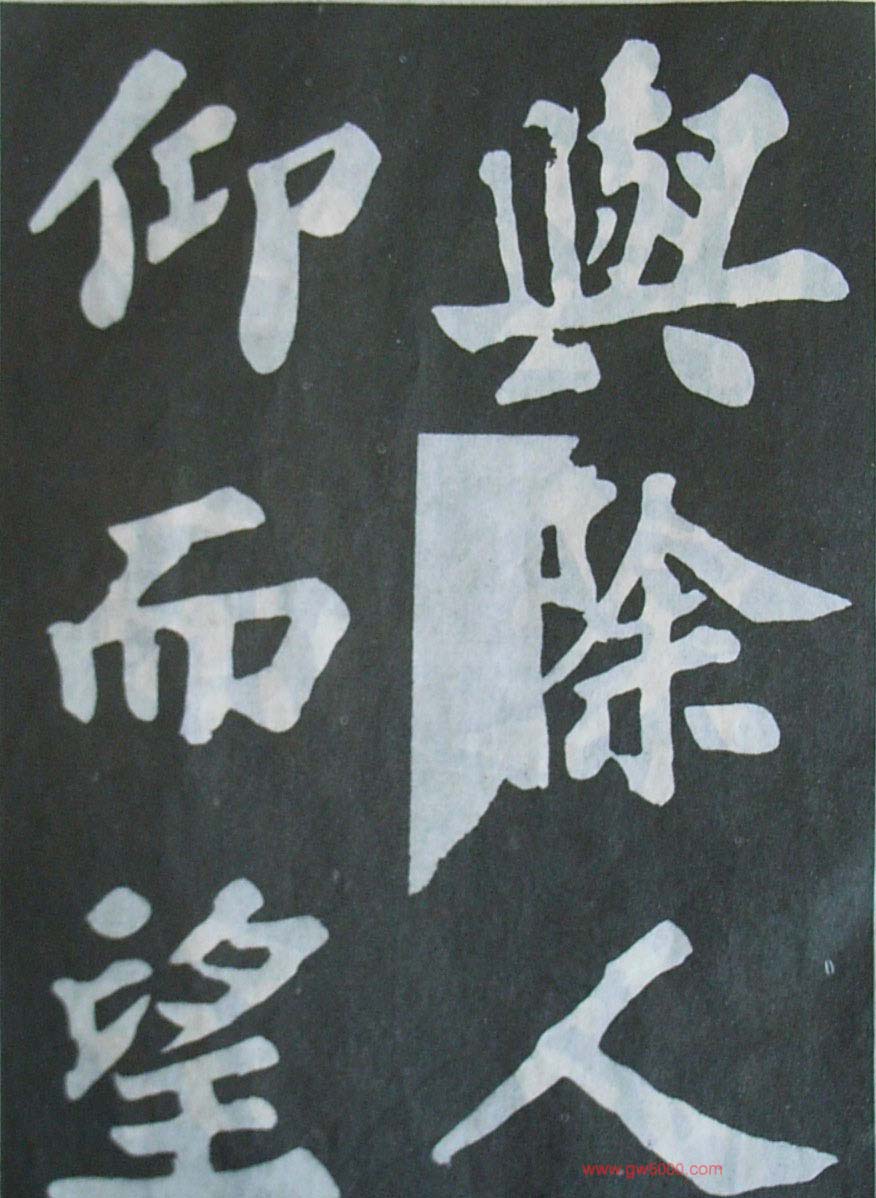 與除人
仰而望
www.gw6000.com